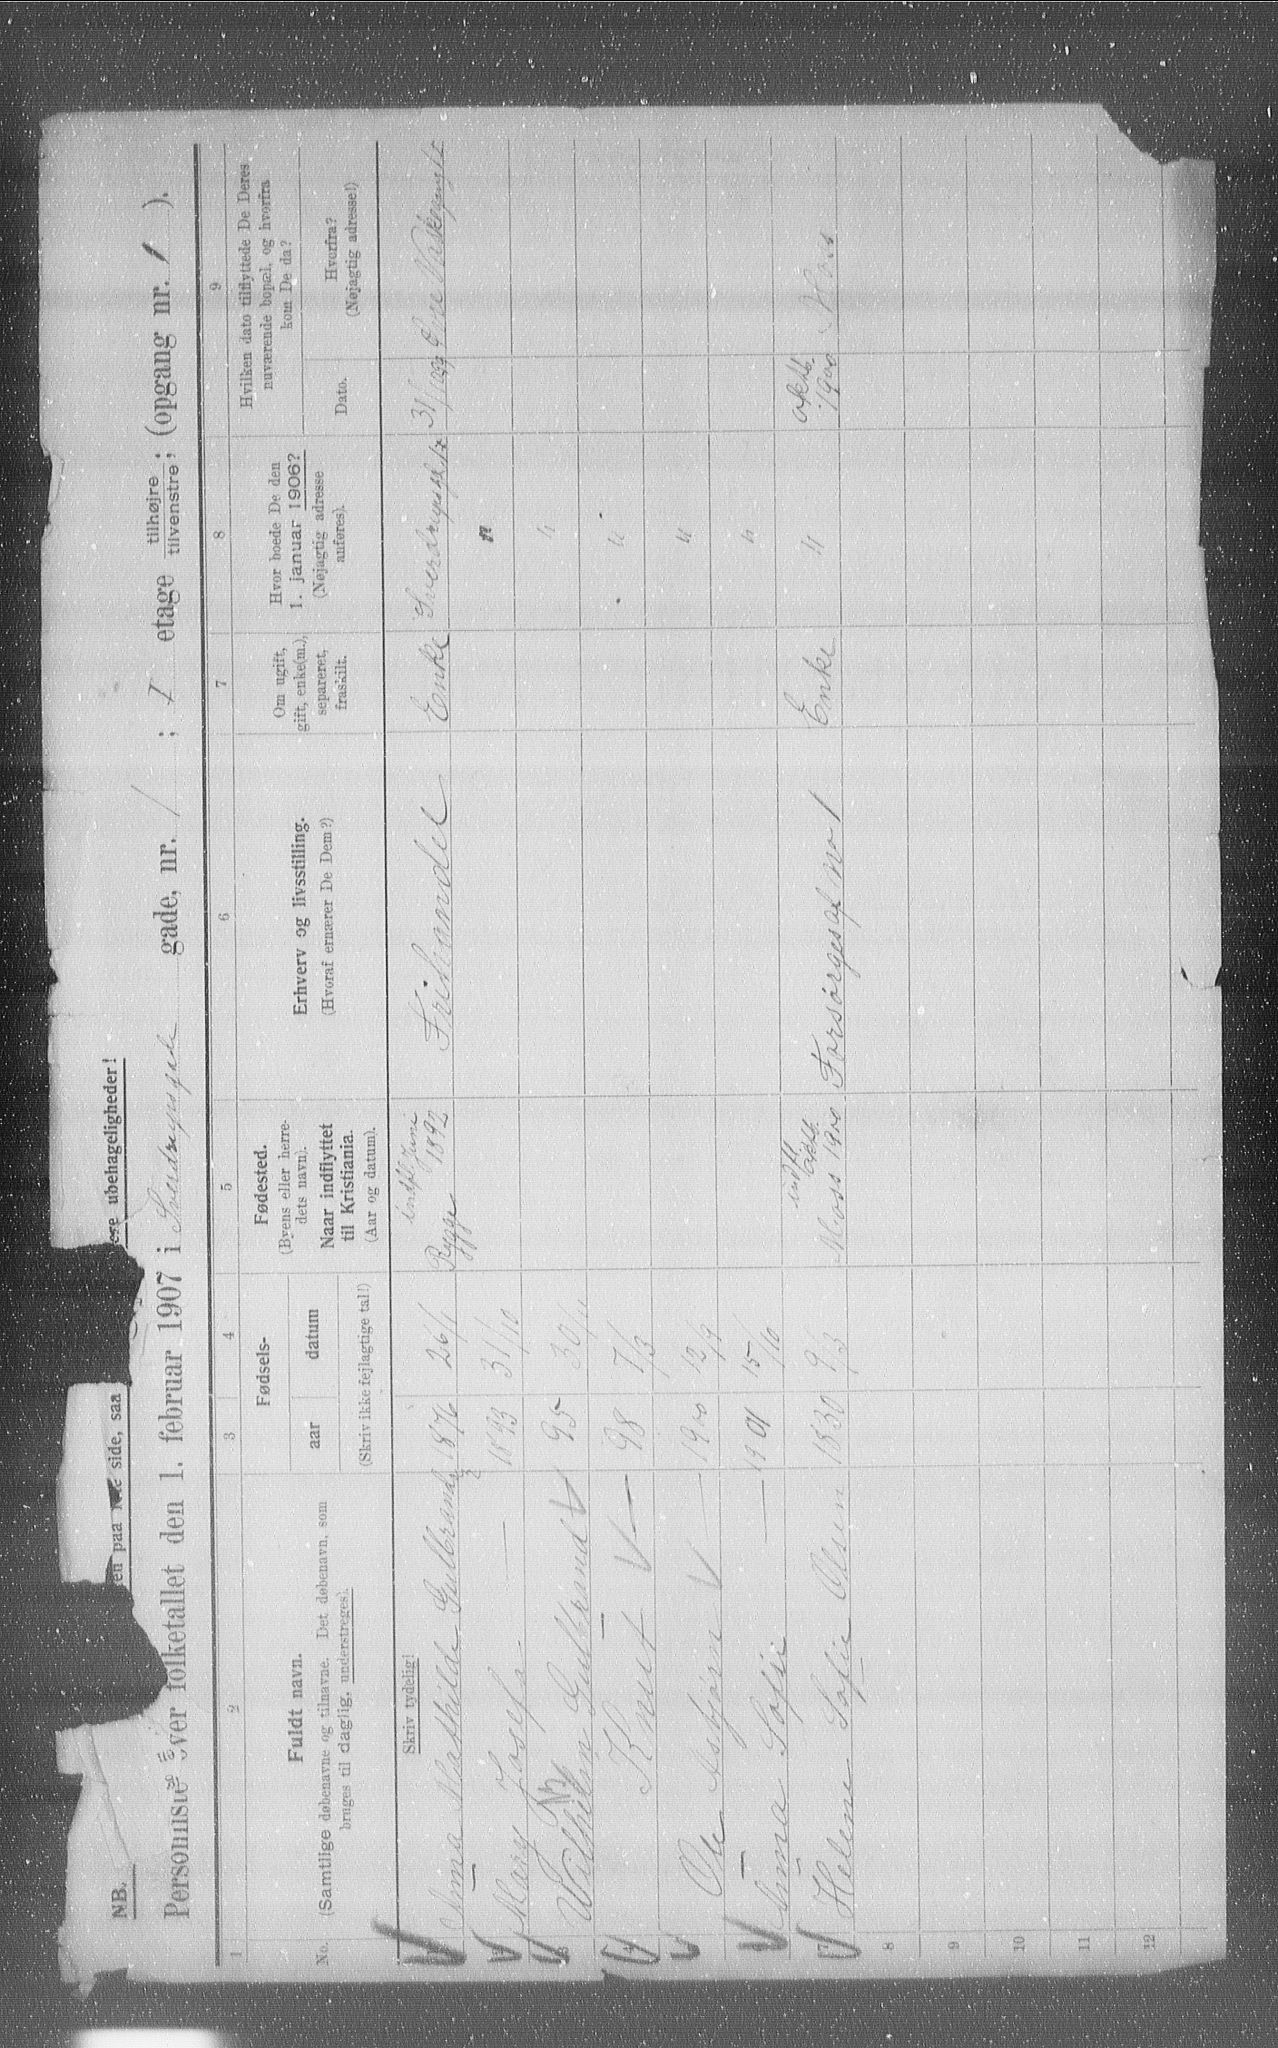 NB.
en paa side, saa
ere ubehageligheder!
Personliste over folketallet den 1. februar 1907 i Sverdrupsgade gade, nr. 1 ; I etage tilhøjre / tilvenstre; (opgang nr. 1 ).
1 2 3 4 5 6 7 8 9
No.
Fuldt navn.
(Samtlige døbenavne og tilnavne. Det døbenavn, som
bruges til daglig, understreges).
Fødsels-
aar datum
(Skriv ikke fejlagtige tal!)
Fødested.
(Byens eller herre-
dets navn).
Naar indflyttet
til Kristiania.
(Aar og datum).
Erhverv og livsstilling.
(Hvoraf ernærer De Dem?)
Om ugift,
gift, enke(m.),
separeret,
fraskilt.
Hvor boede De den
1. januar 1906?
(Nøjagtig adresse
anføres).
Hvilken dato tilflyttede De Deres
nuværende bopæl, og hvorfra
kom De da?
Dato.
Hvorfra?
(Nøjagtig adresse!)
Skriv tydelig!
1 Anna Mathilde Gulbrandsen 1876 26/1 Rygge indfl. Juni 1892 Frihandel Enke
Mary Josefa — 1893 31/10 "
3 Wilhelm Gulbrand 95 30/11 "
4 Knut — 98 7/3 "
Ole Asbjørn — 1900 12/7 "
Anna Sofie — 1901 15/10 "
7 Helene Sofie Olsen 1830 9/3 Moss indfl. oktb. 1900 Forsørges af No 1 Enke " oktb. 1900 Moss
8
9
10
11
12